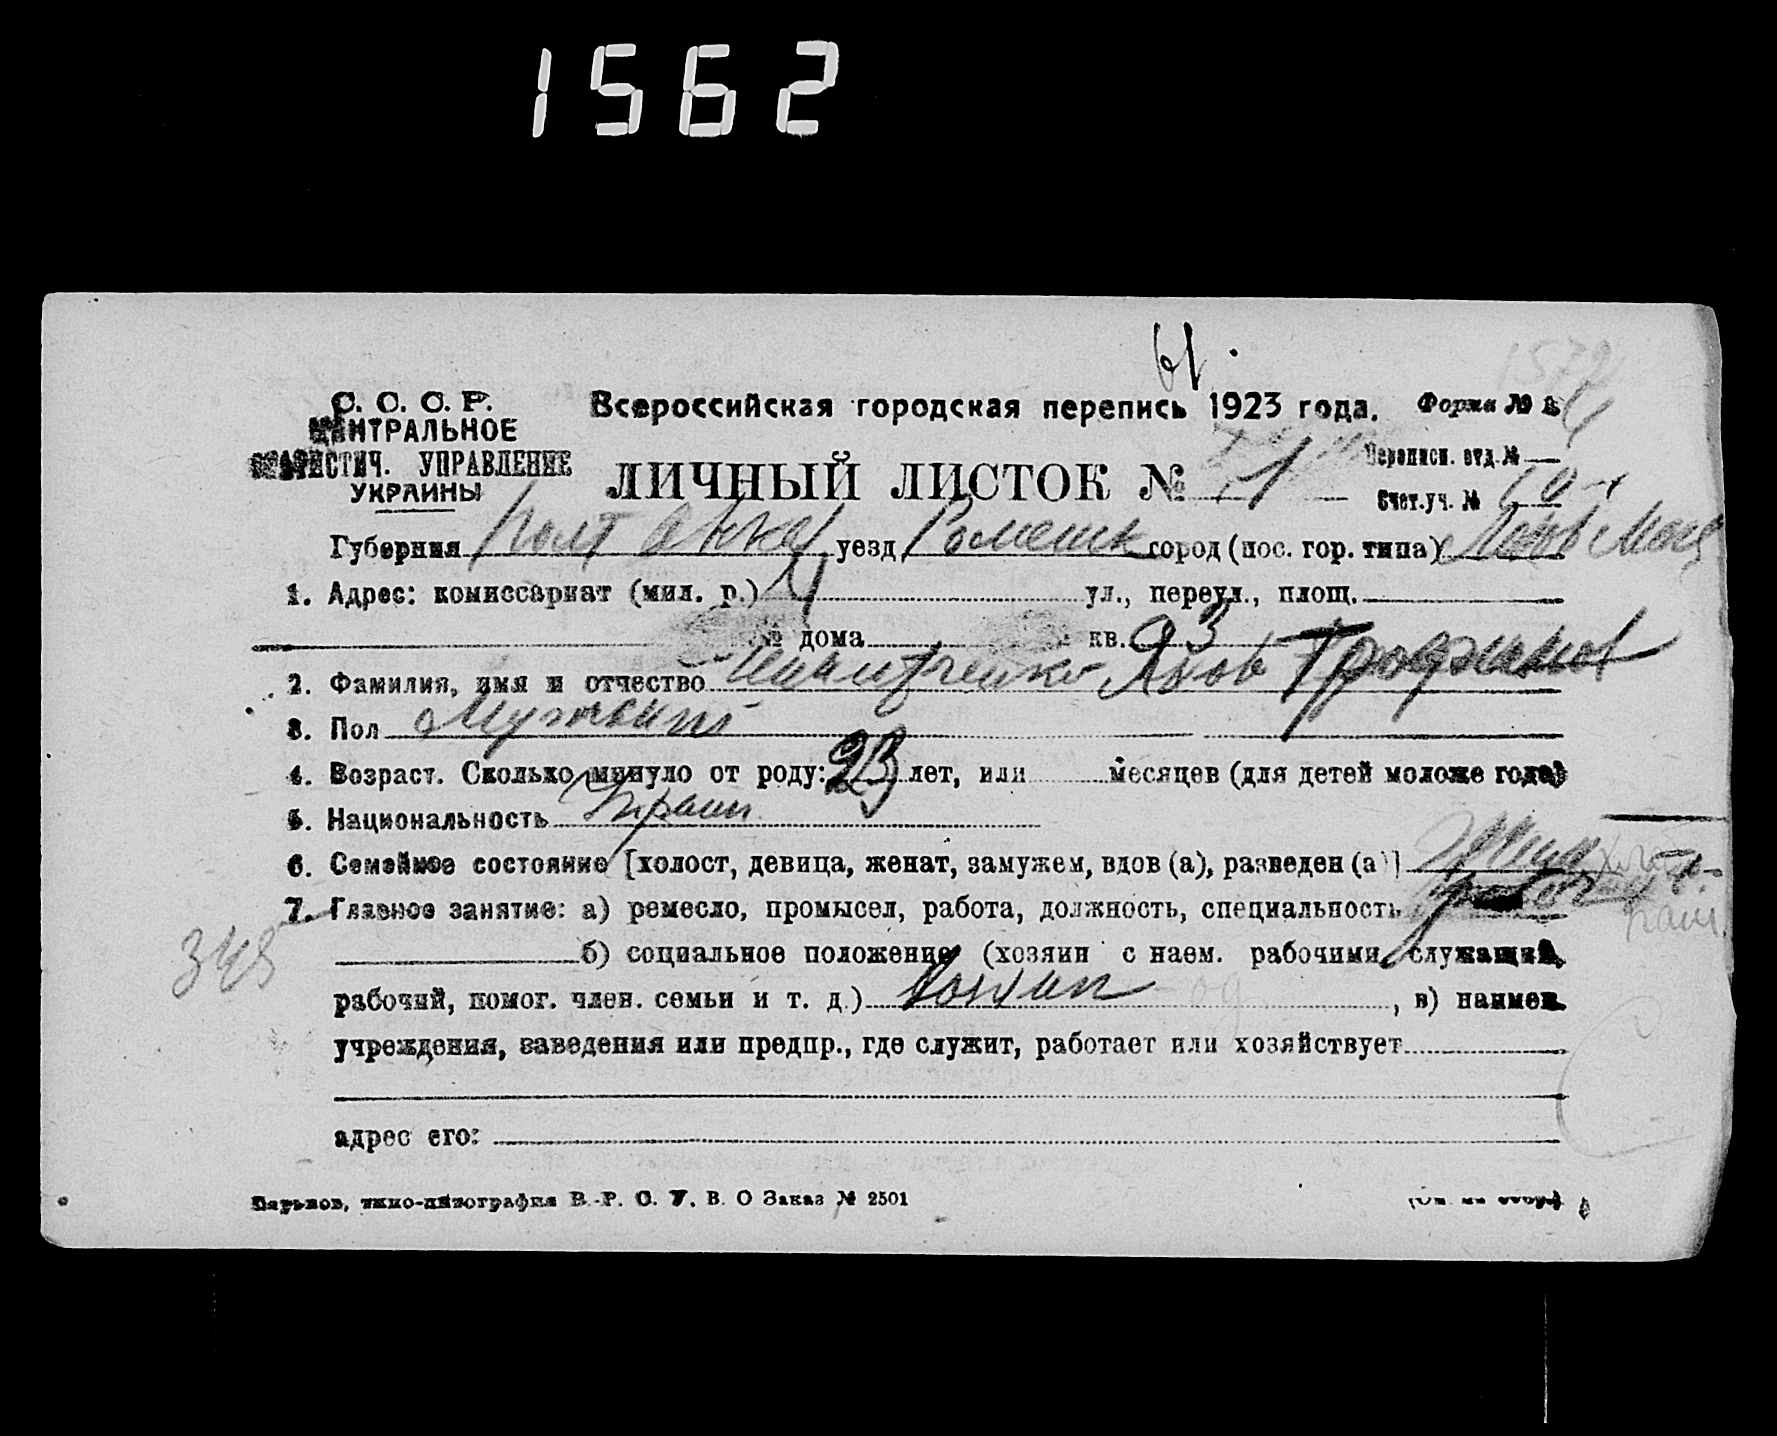 1562
61.
С. С. С. Р.
ЦЕНТРАЛЬНОЕ
СТАТИСТИЧ. УПРАВЛЕНИЕ
УКРАИНЫ
Всероссийская городская перепись 1923 года.
Форма № 2
ЛИЧНЫЙ ЛИСТОК № 1
Переписн. отд. №
Счет. уч. №
Губерния уезд Роменск город (пос. гор. типа)
1. Адрес: комиссариат (мил. р.) ул., переул., площ.
№ дома кв. 93
2. Фамилия, имя и отчество Яков Трофимов
3. Пол Мужской
4. Возраст. Сколько минуло от роду: 23 лет, или месяцев (для детей моложе года)
5. Национальность Украин
6. Семейное состояние [холост, девица, женат, замужем, вдов (а), разведен (а)]
7. Главное занятие: а) ремесло, промысел, работа, должность, специальность
б) социальное положение (хозяин с наем. рабочими, служащий,
рабочий, помог. член. семьи и т. д.) хозяин, в) наимен.
учреждения, заведения или предпр., где служит, работает или хозяйствует
адрес его:
345
Харьков, типо-литография В. Р. С. У. В. О Заказ № 2501